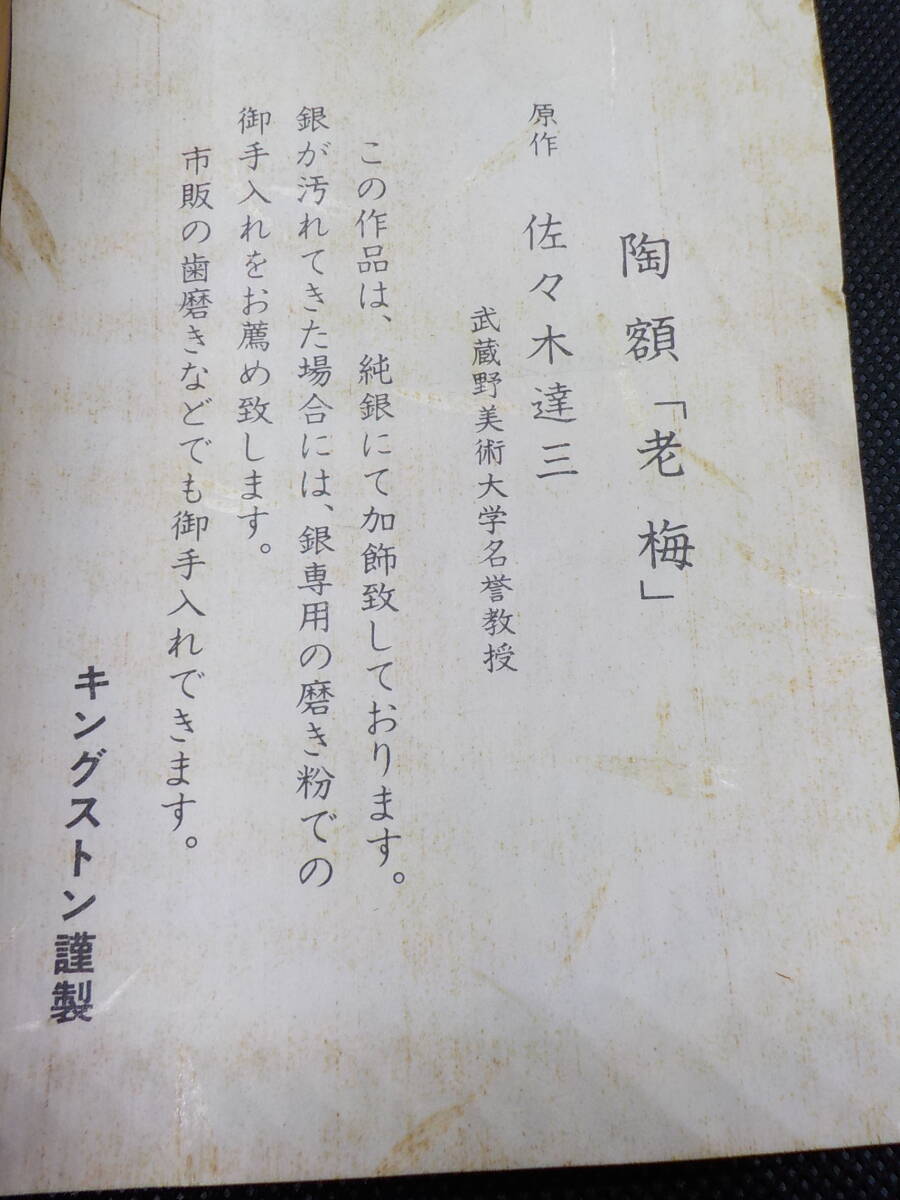 陶額「老梅」
原作 佐々木達三
武蔵野美術大学名誉教授
この作品は、純銀にて加飾致しております。
銀が汚れてきた場合には、銀専用の磨き粉での
御手入れをお薦め致します。
市販の歯磨きなどでも御手入れできます。
キングストン謹製